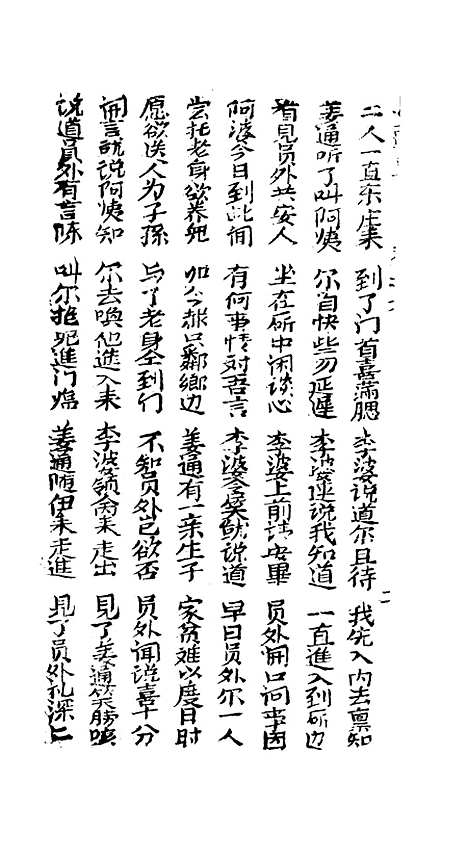 二人一直东庄来 到了门首喜满腮 李婆说道尔且待 我先入内去禀知
姜通听了叫阿姨 尔自快些勿延迟 李婆连说我知道 一直進入到所边
看见员外共安人 坐在所中闲谈心 李婆上前请安畢 员外開口问事因
阿婆今日到此间 有何事情对吾言 李婆含笑就说道 早日员外尔一人
尝托老身欲养児 如今赤只鄰鄉边 姜通有一亲生子 家贫难以度日时
愿欲送人为子孫 与了老身仝到们 不知员外已欲否 员外闻说喜十分
開言就说阿姨知 尔去唤他进入来 李婆領命来走出 見了姜通笑腮
说道员外有言陈 叫尔抱児進门 姜通随伊来走進 見了员外礼深
二